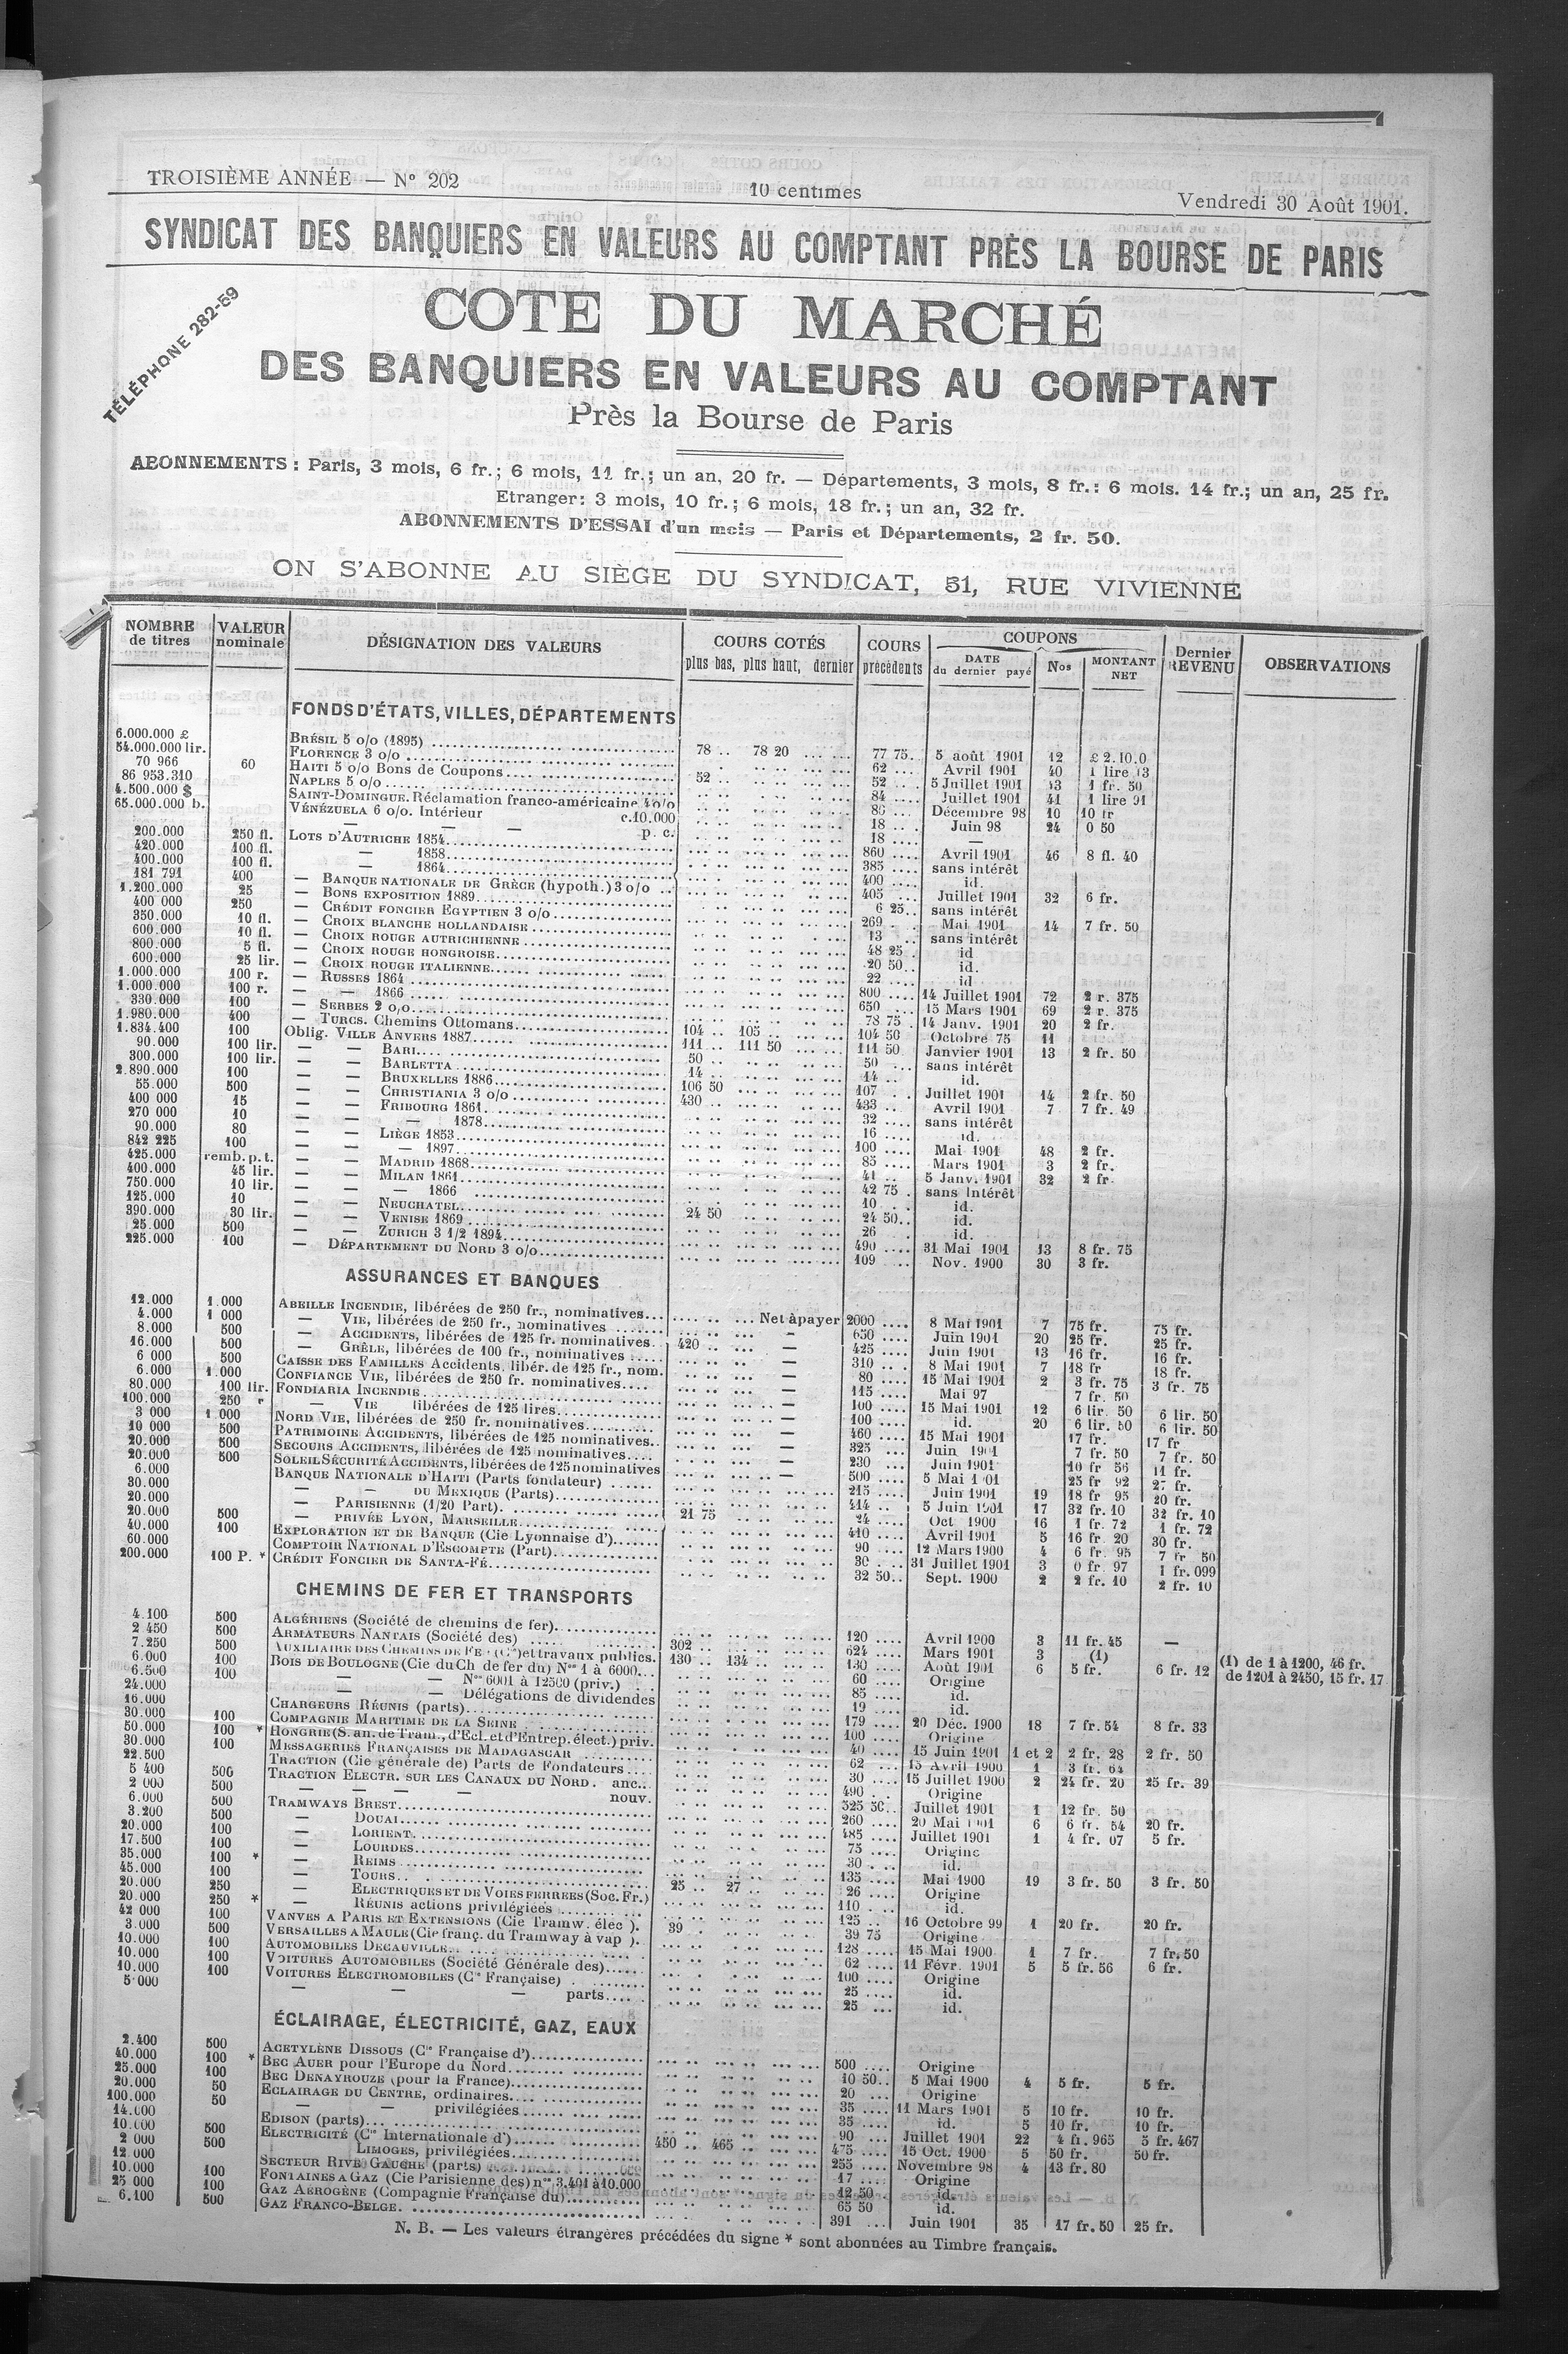 TROISIÈME ANNÉE — N° 202
10 centimes
Vendredi 30 Août 1901.
SYNDICAT DES BANQUIERS EN VALEURS AU COMPTANT PRÈS LA BOURSE DE PARIS
TÉLÉPHONE 282-59
COTE DU MARCHÉ
DES BANQUIERS EN VALEURS AU COMPTANT
Près la Bourse de Paris
ABONNEMENTS : Paris, 3 mois, 6 fr.; 6 mois, 11 fr.; un an, 20 fr. — Départements, 3 mois, 8 fr.: 6 mois. 14 fr.; un an, 25 fr.
Etranger: 3 mois, 10 fr.; 6 mois, 18 fr.; un an, 32 fr.
ABONNEMENTS D'ESSAI d'un mois — Paris et Départements, 2 fr. 50.
ON S'ABONNE AU SIÈGE DU SYNDICAT, 51, RUE VIVIENNE
NOMBRE de titres | VALEUR nominale | DÉSIGNATION DES VALEURS | COURS COTÉS plus bas, plus haut, dernier | COURS précédents | COUPONS DATE du dernier payé | Nos | MONTANT NET | Dernier REVENU | OBSERVATIONS
FONDS D'ÉTATS, VILLES, DÉPARTEMENTS
6.000.000 £ BRÉSIL 5 o/o (1895) 78 .. 78 20 77 75 5 août 1901 12 £ 2.10.0
54.000.000 lir. FLORENCE 3 o/o 62 Avril 1901 40 1 lire 13
70 966 60 HAITI 5 o/o Bons de Coupons 52 .. 52 5 Juillet 1901 13 1 fr. 50
86 953.310 NAPLES 5 o/o 84 Juillet 1901 41 1 lire 91
4.500.000 $ SAINT-DOMINGUE. Réclamation franco-américaine 4 o/o 86 Décembre 98 10 10 fr
65.000.000 b. VÉNÉZUELA 6 o/o. Intérieur c.10.000 18 Juin 98 24 0 50
— — — p. c. 18 —
200.000 250 fl. LOTS D'AUTRICHE 1854 860 Avril 1901 46 8 fl. 40
420.000 100 fl. — 1858 385 sans intérêt
400.000 100 fl. — 1864 400 id.
181 791 400 — BANQUE NATIONALE DE GRÈCE (hypoth.) 3 o/o 405 Juillet 1901 32 6 fr.
1.200.000 25 — BONS EXPOSITION 1889 6 25 sans intérêt
400 000 250 — CRÉDIT FONCIER EGYPTIEN 3 o/o 269 Mai 1901 14 7 fr. 50
350.000 10 fl. — CROIX BLANCHE HOLLANDAISE 13 sans intérêt
600.000 10 fl. — CROIX ROUGE AUTRICHIENNE 48 25 id
800.000 5 fl. — CROIX ROUGE HONGROISE 20 50 id.
600.000 25 lir. — CROIX ROUGE ITALIENNE 22 id
1.000.000 100 r. — RUSSES 1864 800 14 Juillet 1901 72 2 r. 375
1.000.000 100 r. — — 1866 650 15 Mars 1901 69 2 r. 375
330.000 100 — SERBES 2 o/o 78 75 14 Janv. 1901 20 2 fr.
1.980.000 400 — TURCS. Chemins Ottomans 104 .. 105 104 50 Octobre 75 11
1.834.400 100 Oblig. VILLE ANVERS 1887 111 .. 111 50 111 50 Janvier 1901 13 2 fr. 50
90.000 100 lir. — — BARI 50 .. 50 sans intérêt
300.000 100 lir. — — BARLETTA 14 .. 14 id.
2.890.000 100 — — BRUXELLES 1886 106 50 107 Juillet 1901 14 2 fr. 50
55.000 500 — — CHRISTIANIA 3 o/o 430 .. 433 Avril 1901 7 7 fr. 49
400 000 15 — — FRIBOURG 1861 32 sans intérêt
270 000 10 — — — 1878 16 id.
90.000 80 — — LIÈGE 1853 100 Mai 1901 48 2 fr.
842 225 100 — — — 1897 85 Mars 1901 3 2 fr.
425.000 remb. p. t. — — MADRID 1868 41 5 Janv. 1901 32 2 fr.
400.000 45 lir. — — MILAN 1861 42 75 sans intérêt
750.000 10 lir. — — — 1866 10 id.
125.000 10 — — NEUCHATEL 24 50 24 50 id.
390.000 30 lir. — — VENISE 1869 26 id.
25.000 500 — — ZURICH 3 1/2 1894 490 31 Mai 1901 13 8 fr. 75
225.000 100 — DÉPARTEMENT DU NORD 3 o/o 109 Nov. 1900 30 3 fr.
ASSURANCES ET BANQUES
12.000 1.000 ABEILLE INCENDIE, libérées de 250 fr., nominatives Net à payer 2000 8 Mai 1901 7 75 fr. 75 fr.
4.000 1 000 — VIE, libérées de 250 fr., nominatives 650 Juin 1901 20 25 fr. 25 fr.
8.000 500 — ACCIDENTS, libérées de 125 fr. nominatives 420 .. — 425 Juin 1901 13 16 fr 16 fr.
16.000 500 — GRÊLE, libérées de 100 fr., nominatives — 310 8 Mai 1901 7 18 fr 18 fr.
6 000 500 CAISSE DES FAMILLES Accidents, libér. de 125 fr., nom. — 80 15 Mai 1901 2 3 fr. 75 3 fr. 75
6.000 1.000 CONFIANCE VIE, libérées de 250 fr. nominatives — 115 Mai 97 7 fr. 50
80.000 100 lir. FONDIARIA INCENDIE 100 15 Mai 1901 12 6 lir. 50 6 lir. 50
100.000 250 — VIE libérées de 125 lires — 100 id. 20 6 lir. 50 6 lir. 50
3 000 1 000 NORD VIE, libérées de 250 fr. nominatives — 460 15 Mai 1901 17 fr. 17 fr
10 000 500 PATRIMOINE ACCIDENTS, libérées de 125 nominatives — 325 Juin 1901 7 fr. 50 7 fr. 50
20.000 500 SECOURS ACCIDENTS, libérées de 125 nominatives — 230 Juin 1901 10 fr 56 11 fr.
20.000 500 SOLEIL SÉCURITÉ ACCIDENTS, libérées de 125 nominatives — 500 5 Mai 1901 25 fr 92 27 fr.
6.000 BANQUE NATIONALE D'HAITI (Parts fondateur) 215 Juin 1901 19 18 fr 95 20 fr.
30.000 — — DU MEXIQUE (Parts) 414 5 Juin 1901 17 32 fr. 10 32 fr. 10
20.000 — PARISIENNE (1/20 Part). 21 75 24 Oct 1900 16 1 fr. 72 1 fr. 72
20.000 500 — PRIVÉE LYON, MARSEILLE 410 Avril 1901 5 16 fr. 20 30 fr.
40.000 100 EXPLORATION ET DE BANQUE (Cie Lyonnaise d') 90 12 Mars 1900 4 6 fr. 95 7 fr 50
60.000 COMPTOIR NATIONAL D'ESCOMPTE (Part) 30 31 Juillet 1901 3 0 fr. 97 1 fr. 099
200.000 100 P. * CRÉDIT FONCIER DE SANTA-FÉ 32 50 Sept. 1900 2 2 fr. 10 2 fr. 10
CHEMINS DE FER ET TRANSPORTS
4.100 500 ALGÉRIENS (Société de chemins de fer) 120 Avril 1900 3 11 fr. 45 —
2 450 500 ARMATEURS NANTAIS (Société des) 302 624 Mars 1901 3 (1) (1) de 1 à 1200, 46 fr.
de 1201 à 2450, 15 fr. 17
7.250 500 AUXILIAIRE DES CHEMINS DE FE et travaux publics. 130 .. 134 130 Août 1901 6 5 fr. 6 fr. 12
6.000 100 BOIS DE BOULOGNE (Cie du Ch de fer du) Nos 1 à 6000 60 Origine
6.500 100 — — Nos 6001 à 12500 (priv.) 85 id.
24.000 — — Délégations de dividendes 19 id.
16.000 CHARGEURS RÉUNIS (parts) 179 20 Déc. 1900 18 7 fr. 54 8 fr. 33
30.000 100 COMPAGNIE MARITIME DE LA SEINE 100 Origine
50.000 100 * HONGRIE (S. an. de Tram., d'Ecl. et d'Entrep. élect.) priv. 40 15 Juin 1901 1 et 2 2 fr. 28 2 fr. 50
30.000 100 MESSAGERIES FRANÇAISES DE MADAGASCAR 62 15 Avril 1900 1 3 fr.
22.500 TRACTION (Cie générale de) Parts de Fondateurs 30 15 Juillet 1900 2 24 fr. 20 25 fr. 39
5 400 500 TRACTION ELECTR. SUR LES CANAUX DU NORD. anc. 490 Origine
2 000 500 — — — nouv. 525 50 Juillet 1901 1 12 fr. 50
6.000 500 TRAMWAYS BREST 260 20 Mai 1901 6 6 fr. 54 20 fr.
3.200 500 — DOUAI 485 Juillet 1901 1 4 fr. 07 5 fr.
20.000 100 — LORIENT 75 Origine
17.500 100 — LOURDES 30 id.
35.000 100 * — REIMS 135 Mai 1900 19 3 fr. 50 3 fr. 50
45.000 100 — TOURS 25 .. 27 26 Origine
20.000 250 — ELECTRIQUES ET DE VOIES FERREES (Soc. Fr.) 110 id.
20.000 250 * — RÉUNIS actions privilégiées 125 16 Octobre 99 1 20 fr. 20 fr.
42 000 100 VANVES A PARIS ET EXTENSIONS (Cie Tramw. élec ). 39 39 75 Origine
3.000 500 VERSAILLES A MAULE (Cie franç. du Tramway à vap ). 128 15 Mai 1900 1 7 fr. 7 fr. 50
10.000 100 AUTOMOBILES DECAUVILLE 62 11 Févr. 1901 5 5 fr. 56 6 fr.
10.000 100 VOITURES AUTOMOBILES (Société Générale des) 100 Origine
10.000 100 VOITURES ELECTROMOBILES (Cie Française) 25 id.
5 000 — — — parts 25 id.
ÉCLAIRAGE, ÉLECTRICITÉ, GAZ, EAUX
2.400 500 ACETYLÈNE DISSOUS (Cie Française d') 500 Origine
40.000 100 * BEC AUER pour l'Europe du Nord 10 50 5 Mai 1900 4 5 fr. 5 fr.
25.000 100 BEC DENAYROUZE (pour la France) 20 Origine
20.000 50 ECLAIRAGE DU CENTRE, ordinaires 35 11 Mars 1901 5 10 fr. 10 fr.
100.000 50 — — privilégiées 35 id. 5 10 fr. 10 fr.
14.000 EDISON (parts) 90 Juillet 1901 22 4 fr. 965 5 fr. 467
10.000 500 ELECTRICITÉ (Cie Internationale d') 450 .. 465 475 15 Oct. 1900 5 50 fr. 50 fr.
2 000 500 LIMOGES, privilégiées 255 Novembre 98 4 13 fr. 80
12.000 SECTEUR RIVE GAUCHE (parts) 17 Origine
10.000 100 FONTAINES A GAZ (Cie Parisienne des) nos 3.401 à 10.000 12 50 id.
25 000 100 GAZ AEROGÈNE (Compagnie Française du) 65 50 id.
6.100 500 GAZ FRANCO-BELGE 391 Juin 1901 35 17 fr. 50 25 fr.
N. B. — Les valeurs étrangères précédées du signe * sont abonnées au Timbre français.